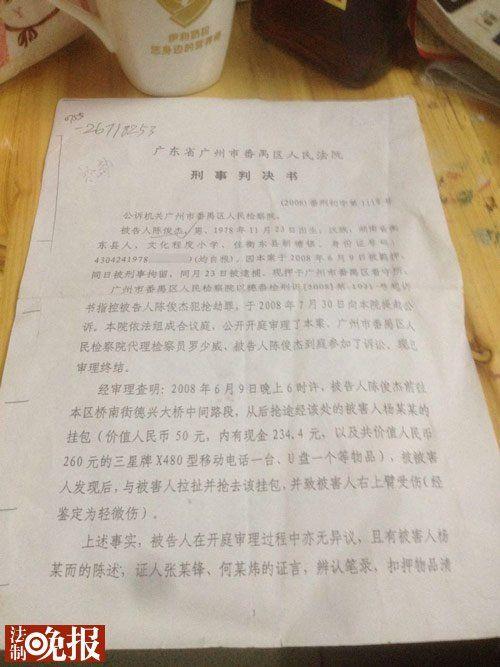 伊利奶粉
您身边的营养师
0755
-26718253
广东省广州市番禺区人民法院
刑事判决书
(2008)番刑初字第1118号
公诉机关广州市番禺区人民检察院。
被告人陈俊杰,男,1978年11月23日出生,汉族,湖南省衡
东县人,文化程度小学,住衡东县新塘镇,身份证号码:
4304241978 (均自报)。因本案于2008年6月9日被羁押,
同日被刑事拘留,同月23日被逮捕。现押于广州市番禺区看守所。
广州市番禺区人民检察院以穗番检刑诉[2008]第1031号起诉
书指控被告人陈俊杰犯抢劫罪,于2008年7月30日向本院提起公
诉。本院依法组成合议庭,公开开庭审理了本案。广州市番禺区人
民检察院代理检察员罗少威、被告人陈俊杰到庭参加了诉讼。现已
审理终结。
经审理查明:2008年6月9日晚上6时许,被告人陈俊杰前往
本区桥南街德兴大桥中间路段,从后抢途经该处的被害人杨某某的
挂包(价值人民币50元,内有现金234.4元,以及共价值人民币
260元的三星牌X480型移动电话一台、U盘一个等物品),被被害
人发现后,与被害人拉扯并抢去该挂包,并致被害人右上臂受伤(经
鉴定为轻微伤)。
上述事实,被告人在开庭审理过程中亦无异议,且有被害人杨
某而的陈述;证人张某锋、何某炜的证言,辨认笔录,扣押物品清
1
法制晚报